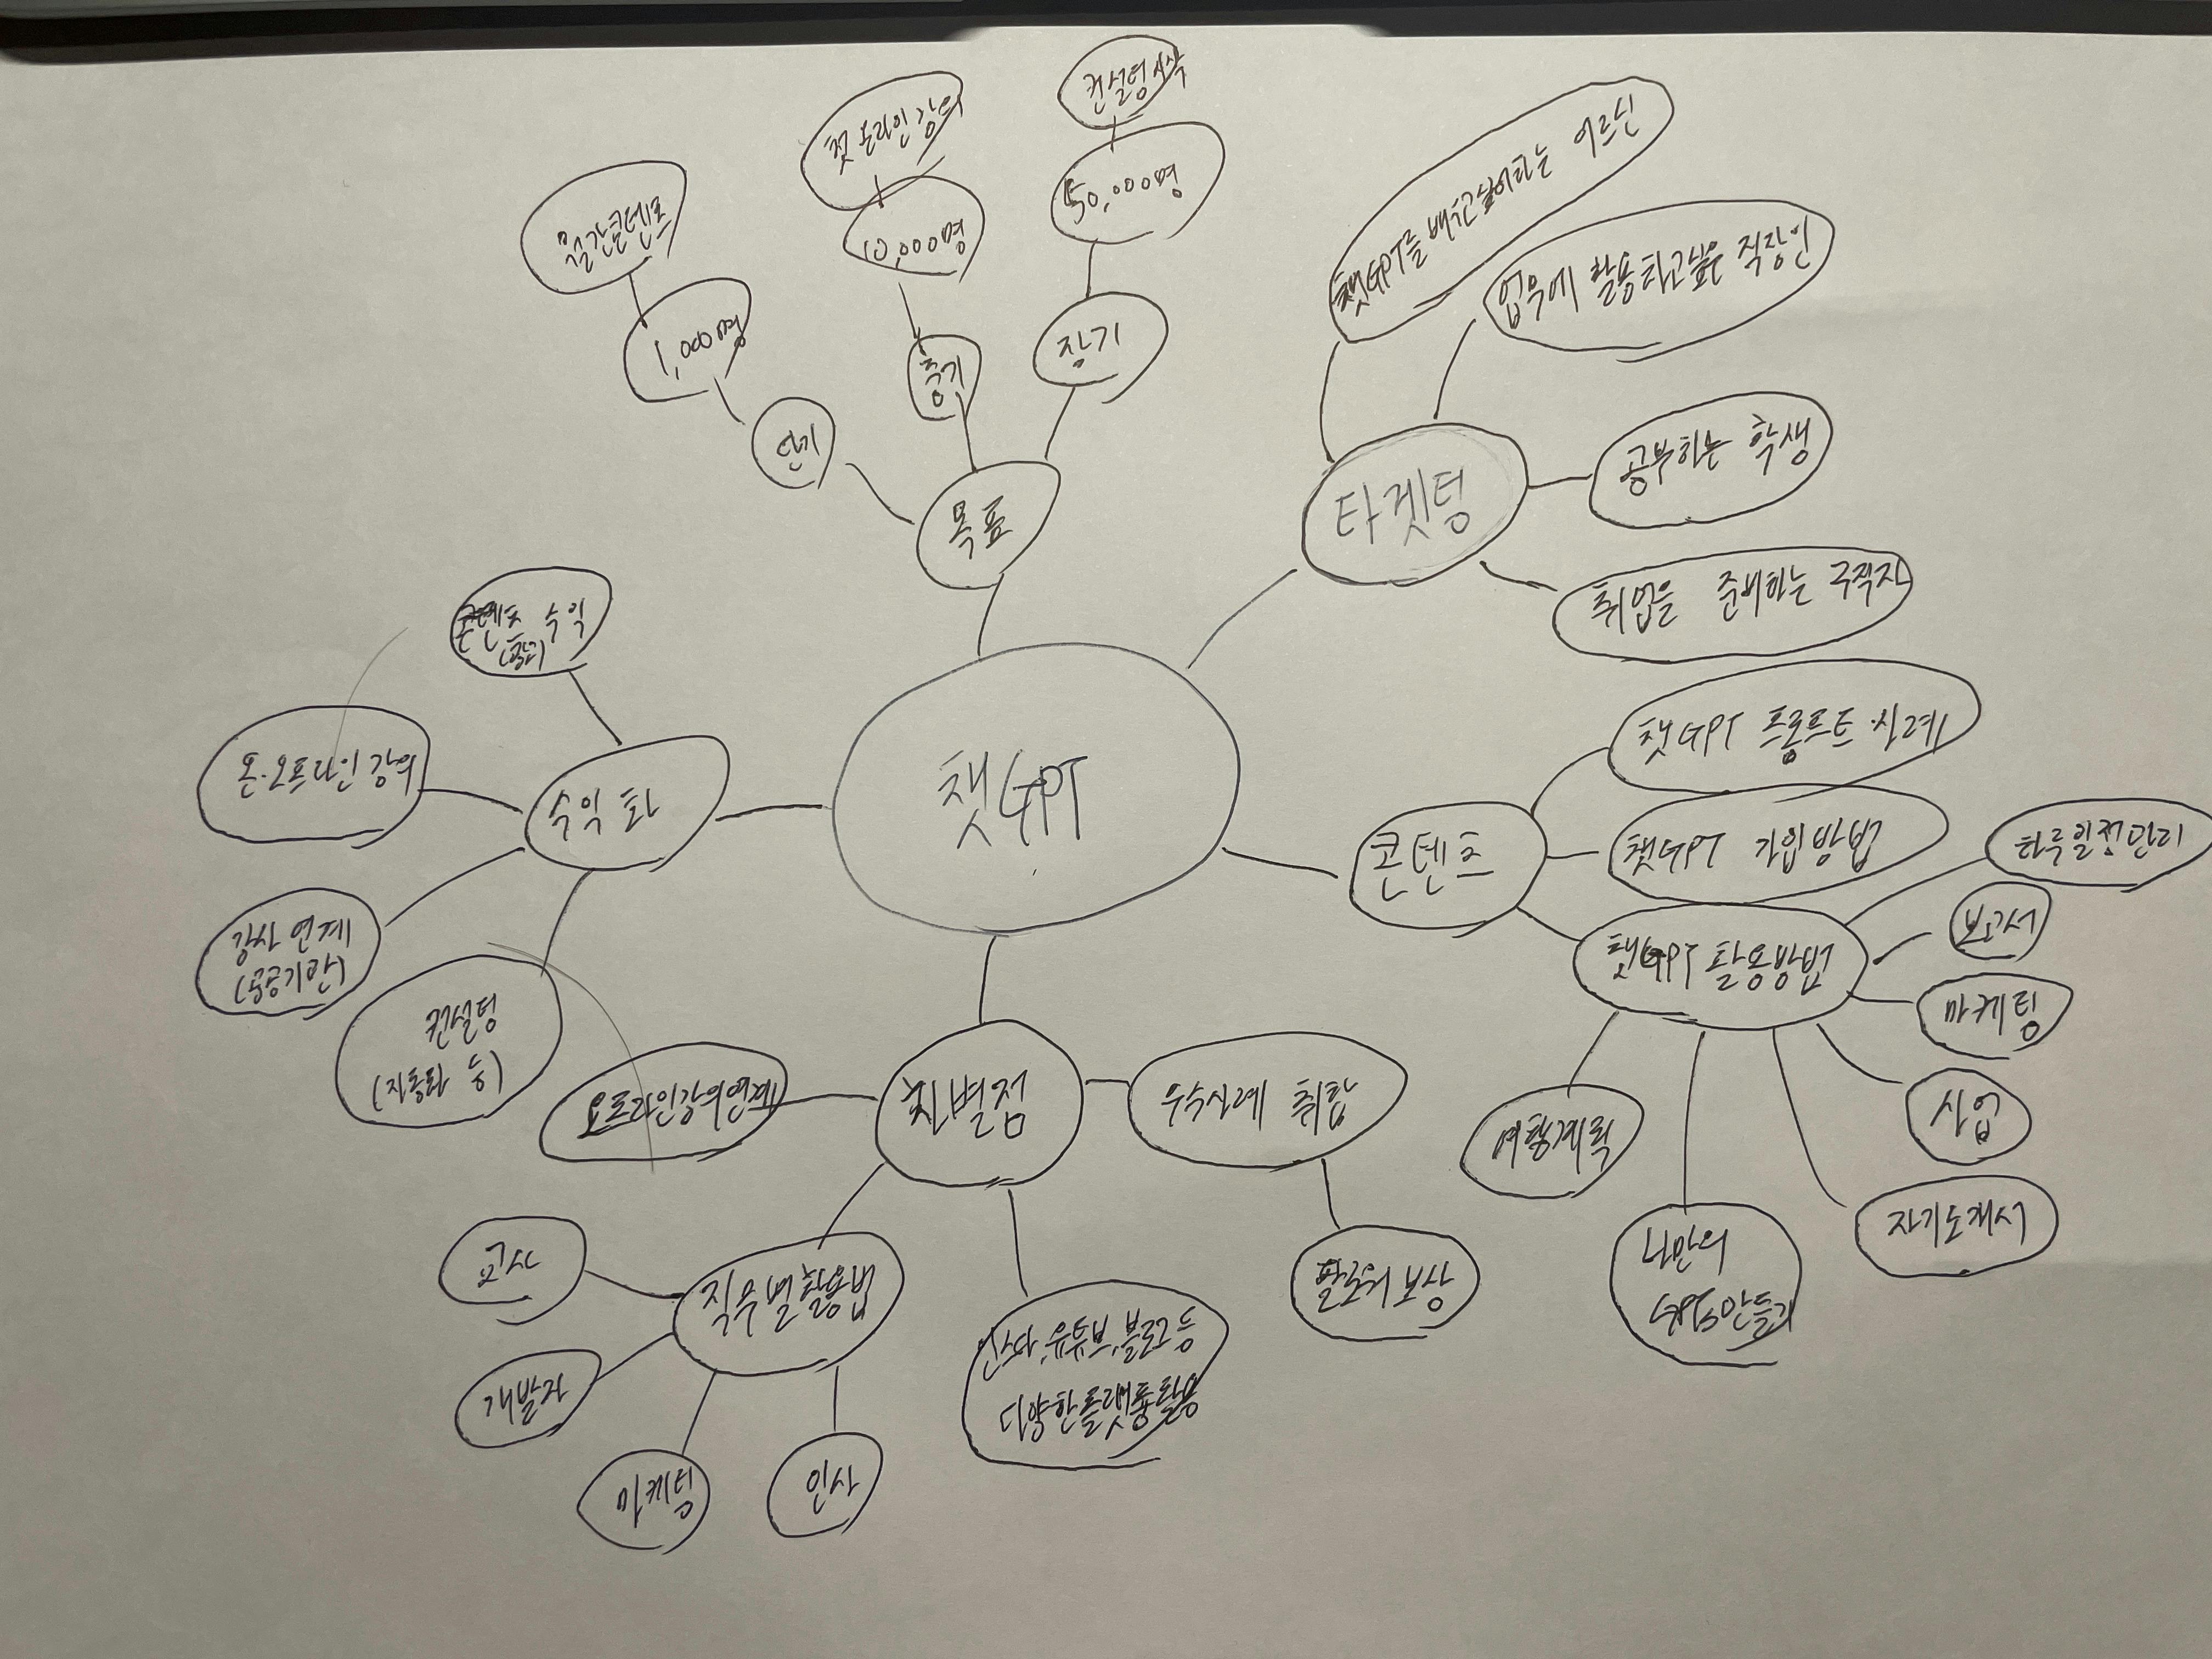 컨설팅 시작
첫 온라인 강의
50,000명
10,000명
월간콘텐츠
1,000명
장기
중기
단기
목표
챗GPT를 배우고싶어하는 어르신
업무에 활용하고싶은 직장인
타겟팅
공부하는 학생
취업을 준비하는 구직자
콘텐츠 수익
온·오프라인 강의
수익화
강사 연계
(공공기관)
컨설팅
(자동화 등)
챗GPT
콘텐츠
챗GPT 프롬프트 사례
챗GPT 가입방법
챗GPT 활용방법
하루일정관리
보고서
마케팅
사업
자기소개서
나만의
GPTs만들기
여행계획
차별점
오프라인강의연계
우수사례 취합
팔로워 보상
직무별활용법
교사
개발자
마케팅
인사
인스타,유튜브,블로그 등
다양한플랫폼활용